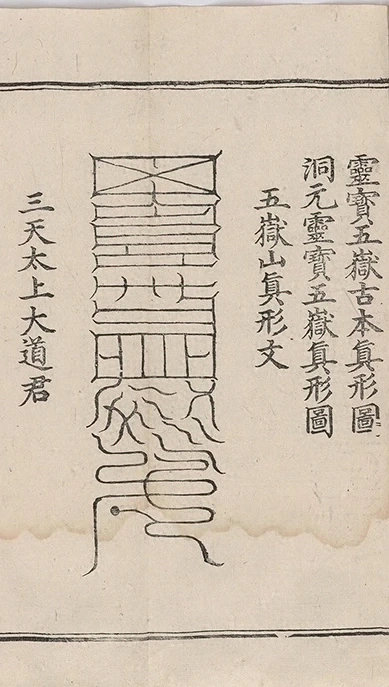 靈寶五嶽古本眞形圖
洞元靈寶五嶽眞形圖
五嶽山眞形文
三天太上大道君